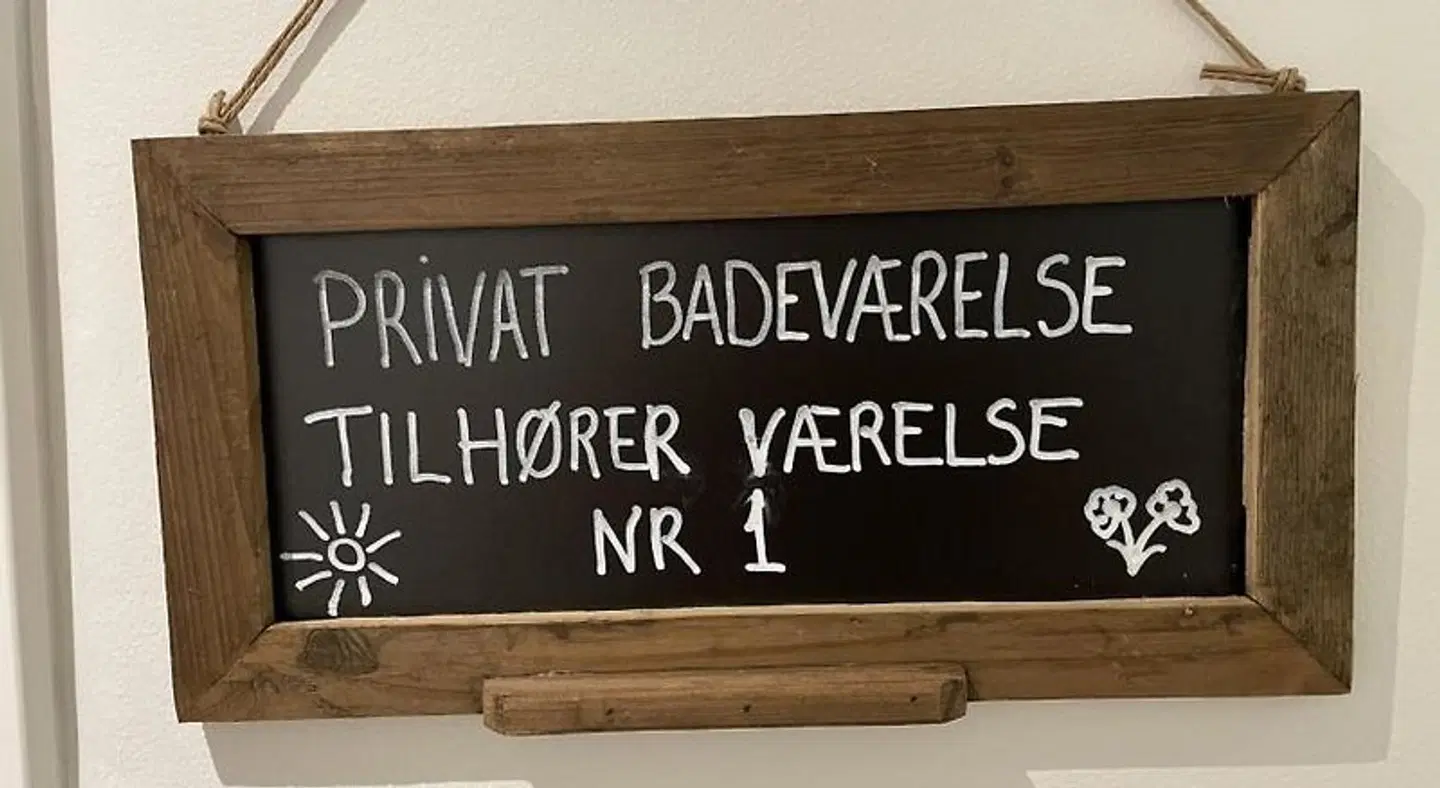 PRIVAT BADEVÆRELSE
TILHØRER VÆRELSE
NR 1